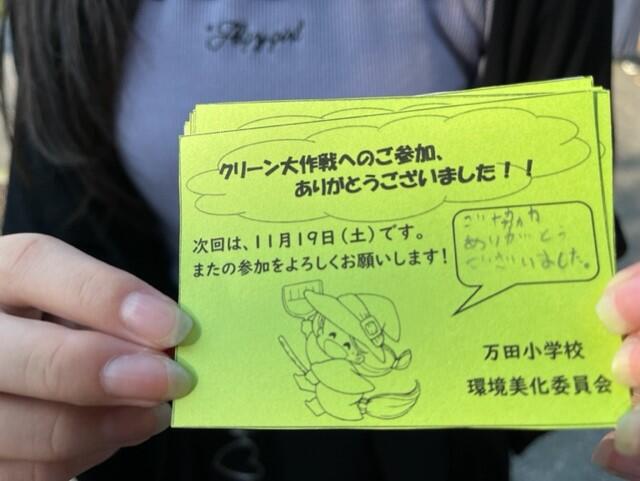 クリーン大作戦へのご参加、
ありがとうございました!!
次回は、11月19日(土)です。
またの参加をよろしくお願いします!
ご協力
ありがとう
ございました。
万田小学校
環境美化委員会